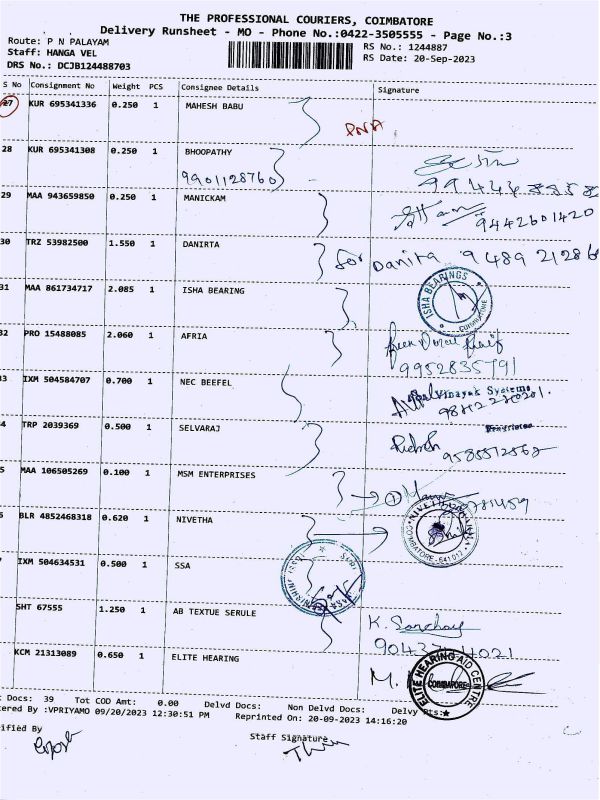 THE PROFESSIONAL COURIERS, COIMBATORE
Delivery Runsheet - MO - Phone No.:0422-3505555 - Page No.:3
Route: P N PALAYAM
RS No.: 1244887
Staff: HANGA VEL
RS Date: 20-Sep-2023
DRS No.: DCJB124488703
S No Consignment No Weight PCS Consignee Details Signature
27 KUR 695341336 0.250 1 MAHESH BABU
PNA
28 KUR 695341308 0.250 1 BHOOPATHY
9901128760
29 MAA 943659850 0.250 1 MANICKAM
9442601420
30 TRZ 53982500 1.550 1 DANIRTA
for Danirta
31 MAA 861734717 2.085 1 ISHA BEARING
ISHA BEARINGS
COIMBATORE
32 PRO 15488085 2.060 1 AFRIA
9952835791
33 IXM 504584707 0.700 1 NEC BEEFEL
Vinayak Systems
34 TRP 2039369 0.500 1 SELVARAJ
9585512562
35 MAA 106505269 0.100 1 MSM ENTERPRISES
6 BLR 4852468318 0.620 1 NIVETHA
COIMBATORE-641017
7 IXM 504634531 0.500 1 SSA
SHT 67555 1.250 1 AB TEXTUE SERULE
K.
KCM 21313089 0.650 1 ELITE HEARING
M.
ELITE HEARING AID CENTRE
COIMBATORE
Docs: 39 Tot COD Amt: 0.00 Delvd Docs: Non Delvd Docs: Delvy
tered By :VPRIYAMO 09/20/2023 12:30:51 PM Reprinted On: 20-09-2023 14:16:20
ified By
Staff Signature